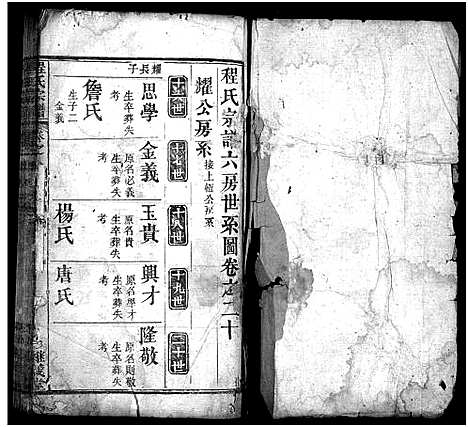 程氏宗譜六房世系圖卷之二十
耀公房系 接上恒公房系
十六世
十七世
十八世
十九世
二十世
耀長子
思學
生卒葬失考
詹氏
生子二
金義
金義
原名必義
生卒葬失考
玉貴
原名貴
生卒葬失考
楊氏
興才
原名學才
生卒葬失考
唐氏
隆敬
原名則敬
生卒葬失考